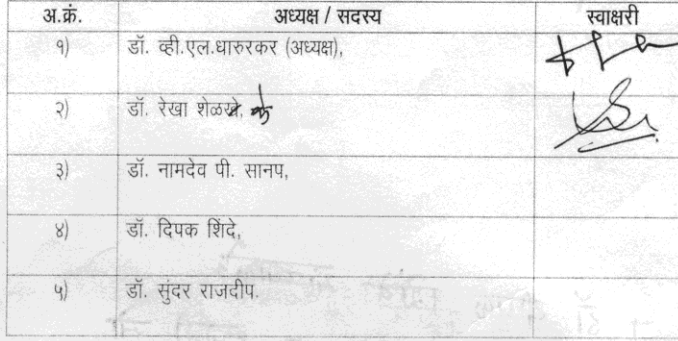 अ.क्रं. अध्यक्ष / सदस्य स्वाक्षरी
१) डॉ. व्ही.एल.धारुरकर (अध्यक्ष),
२) डॉ. रेखा शेळखे, के
३) डॉ. नामदेव पी. सानप,
४) डॉ. दिपक शिंदे,
५) डॉ. सुंदर राजदीप.